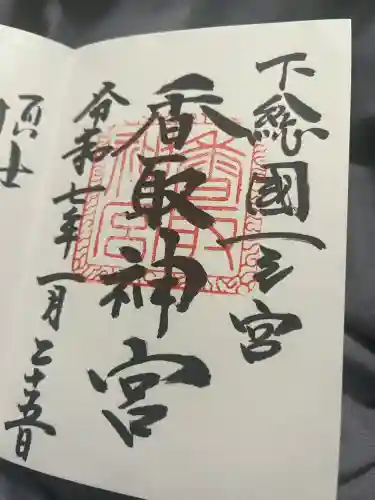 下総國一之宮
香取神宮
令和七年一月二十五日